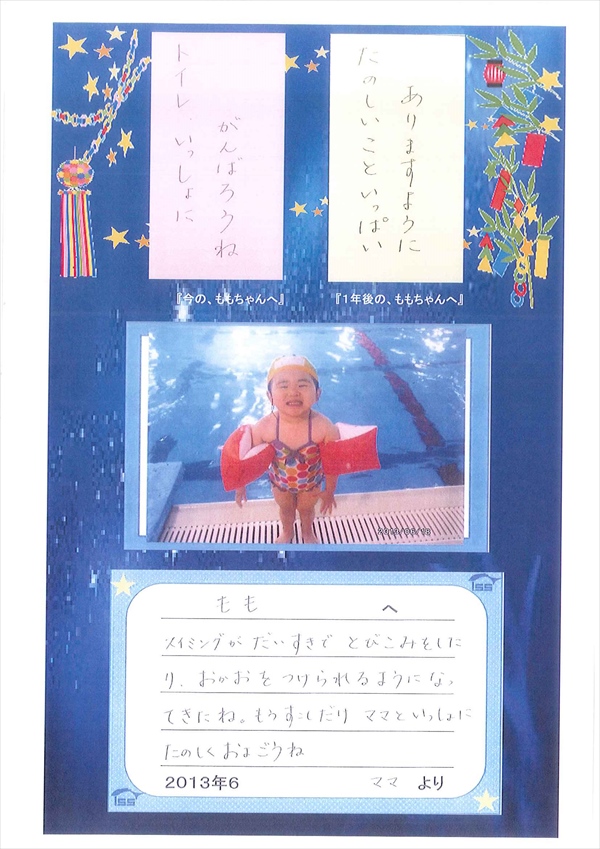 たのしいこといっぱい
ありますように
トイレ、いっしょに
がんばろうね
『今の、ももちゃんへ』
『1年後の、ももちゃんへ』
2013/06/18
もも へ
スイミングが だいすきで とびこみをした
り、おかおを つけられるようになっ
てきたね。もうすこしだけ ママといっしょに
たのしく およごうね
2013年6 ママ より
ISS
ISS